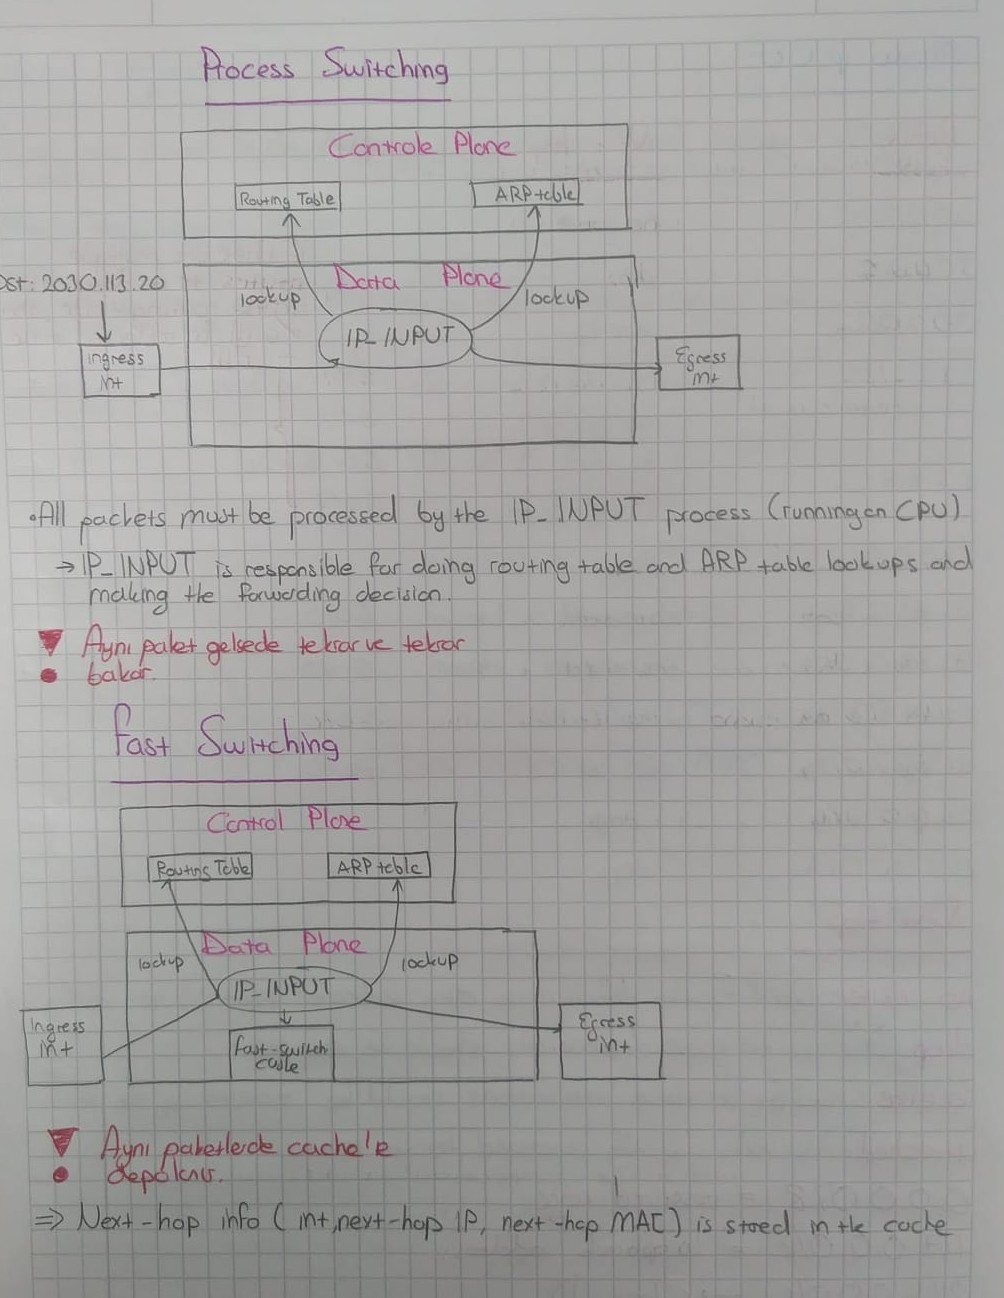 Process Switching
Controle Plane
Routing Table
ARP table
Dst: 2030.113.20
Data Plane
lookup
lookup
IP_INPUT
ingress
int
Egress
int
•All packets must be processed by the IP_INPUT process (running on CPU)
→ IP_INPUT is responsible for doing routing table and ARP table lookups and
making the forwarding decision.
Aynı paket gelsede tekrar ve tekrar
bakar.
Fast Switching
Control Plane
Routing Table
ARP table
Data Plane
lookup
lookup
IP_INPUT
Ingress
int
Egress
int
fast-switch
Aynı paketlerde cache'e
depolanır.
⇒ Next-hop info (int, next-hop IP, next-hop MAC) is stored in the cache